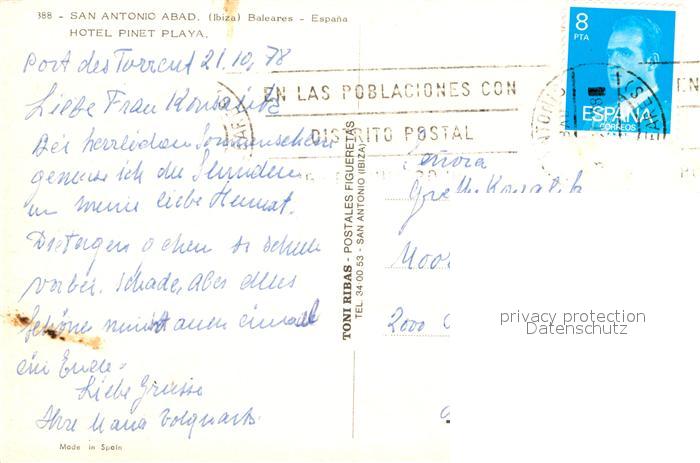 388 - SAN ANTONIO ABAD. (Ibiza) Baleares - España
HOTEL PINET PLAYA.
Port des Torrent 21.10.78
Liebe Frau
Bei herrlichem Sonnenschein
geniesse ich die Stunden
in meine liebe Heimat.
Die Tagen gehen so schnell
vorbei. Schade, aber alles
Schönes nimmt auch einmal
ein Ende.
Liebe Grüsse
Ihre Maria
Made in Spain
TONI RIBAS - POSTALES FIGUERETAS
TEL. 34 00 53 - SAN ANTONIO (IBIZA)
EN LAS POBLACIONES CON
DISTRITO POSTAL
EN
8
PTA
ESPAÑA
CORREOS
Señora
Moo
2000
privacy protection
Datenschutz